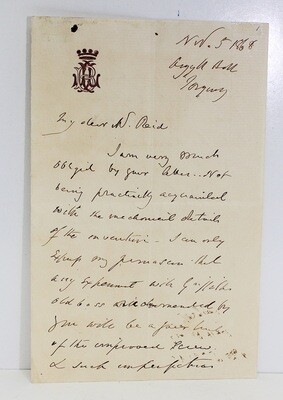 Nov. 5 1868
Argyll Hall
Torquay
My dear Mr. Reid
I am very much
obliged by your letter. Not
being practically acquainted
with the mechanical details
of the invention - I can only
express my that
any Experiment with
old boss recommended by
you will be a fair
of the improved Screw
& such imperfections